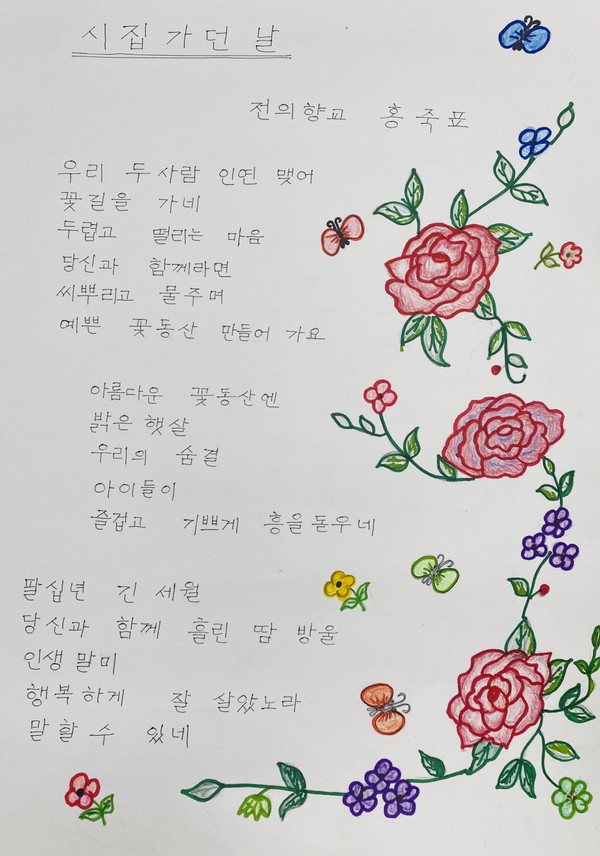 시집가던 날
전의향교 홍죽표
우리 두사람 인연 맺어
꽃길을 가네
두렵고 떨리는 마음
당신과 함께라면
씨뿌리고 물주며
예쁜 꽃동산 만들어 가요
아름다운 꽃동산엔
밝은 햇살
우리의 숨결
아이들이
즐겁고 기쁘게 흥을 돋우네
팔십년 긴 세월
당신과 함께 흘린 땀 방울
인생 말미
행복하게 잘 살았노라
말 할 수 있네